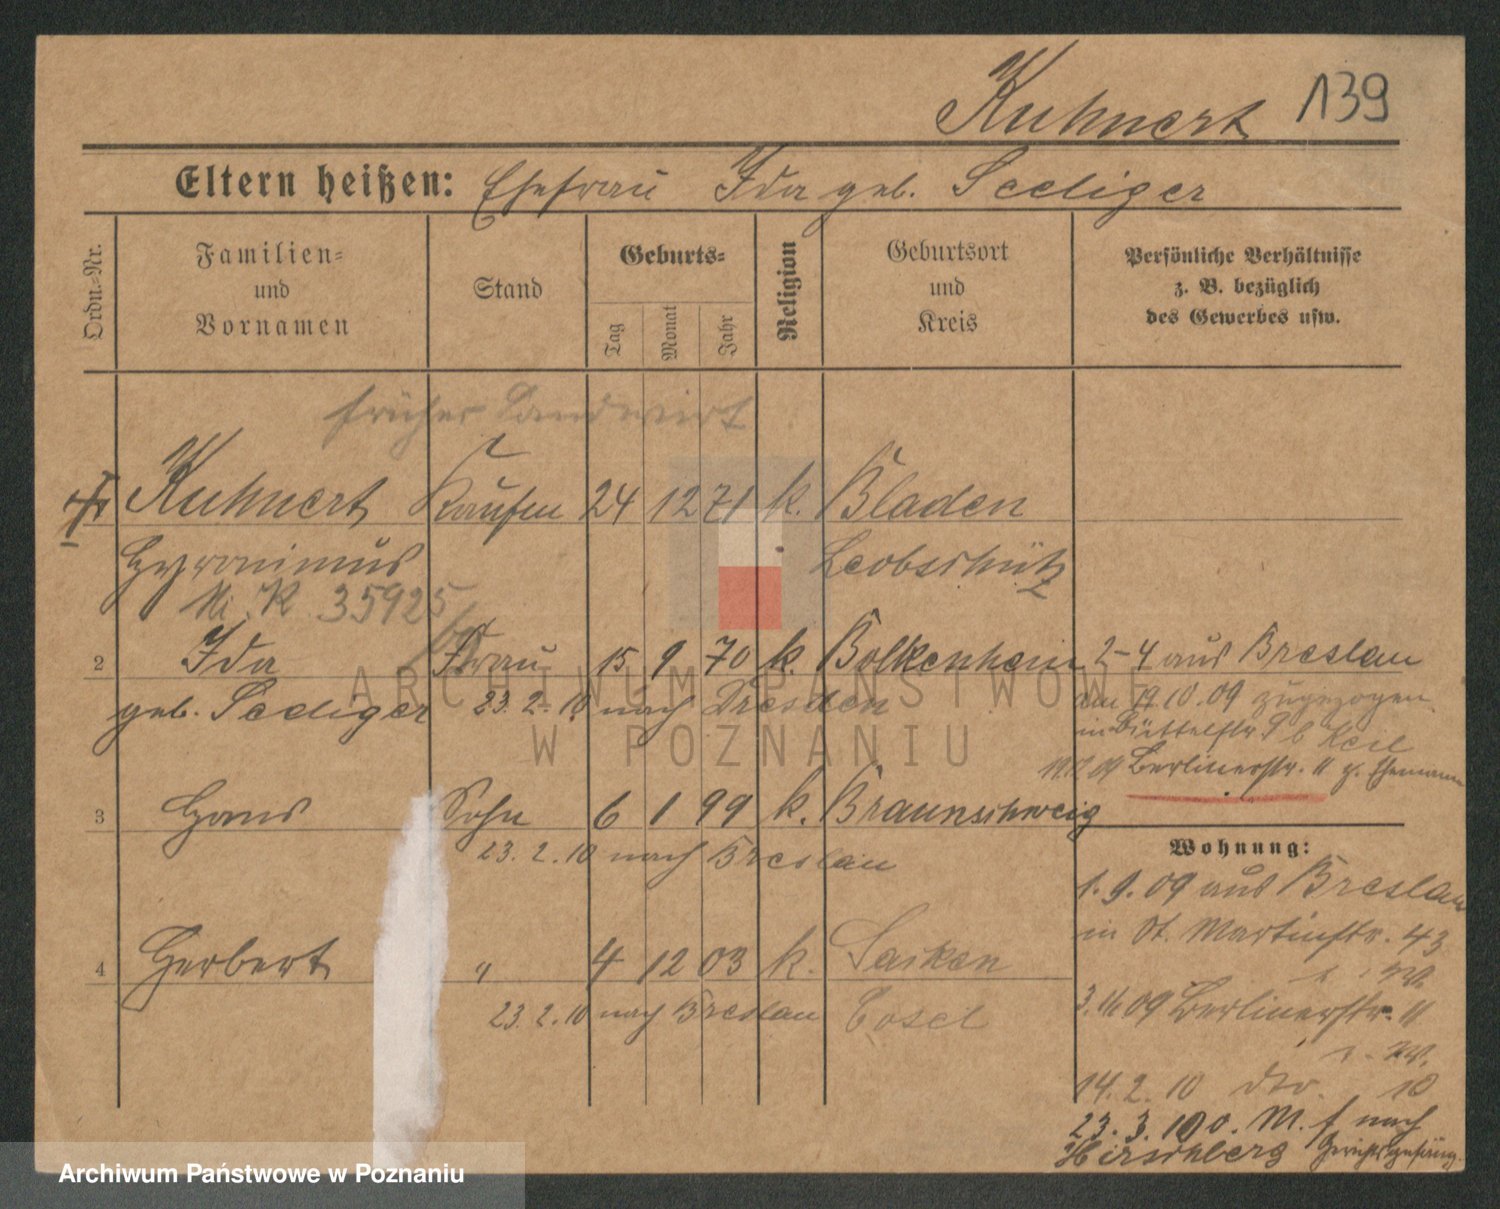 Kuhnert 139
Eltern heißen: Ehefrau Ida geb. Seeliger
Ordn.-Nr.
Familien-
und
Vornamen
Stand
Geburts-
Tag
Monat
Jahr
Religion
Geburtsort
und
Kreis
Persönliche Verhältnisse
z. B. bezüglich
des Gewerbes usw.
früher Landwirt
Kuhnert Kaufm 24 12 71 k. Bladen
Hyronimus Leobschütz
K 35925
2 Ida Frau 15 9 70 k. Bolkenhain
geb. Seeliger 23. 2. 10 nach Dresden
2-4 aus Breslau
am 19.10.09 zugezogen
in Büttelstr. b Keil
09 Berlinerstr. 11 z. Ehemann
3 Hans Sohn 6 1 99 k. Braunschweig
23. 2. 10 nach Breslau
4 Herbert " 4 12 03 k. Sacken
23. 2. 10 nach Breslau Cosel
Wohnung:
1. 9. 09 aus Breslau
in St. Martinstr. 43
3. 11. 09 Berlinerstr. 11
14. 2. 10 dto. 10
23. 3. 10 o. M. f nach
Hirschberg Gerichtsgefäng.
ARCHIWUM PAŃSTWOWE
W POZNANIU
Archiwum Państwowe w Poznaniu